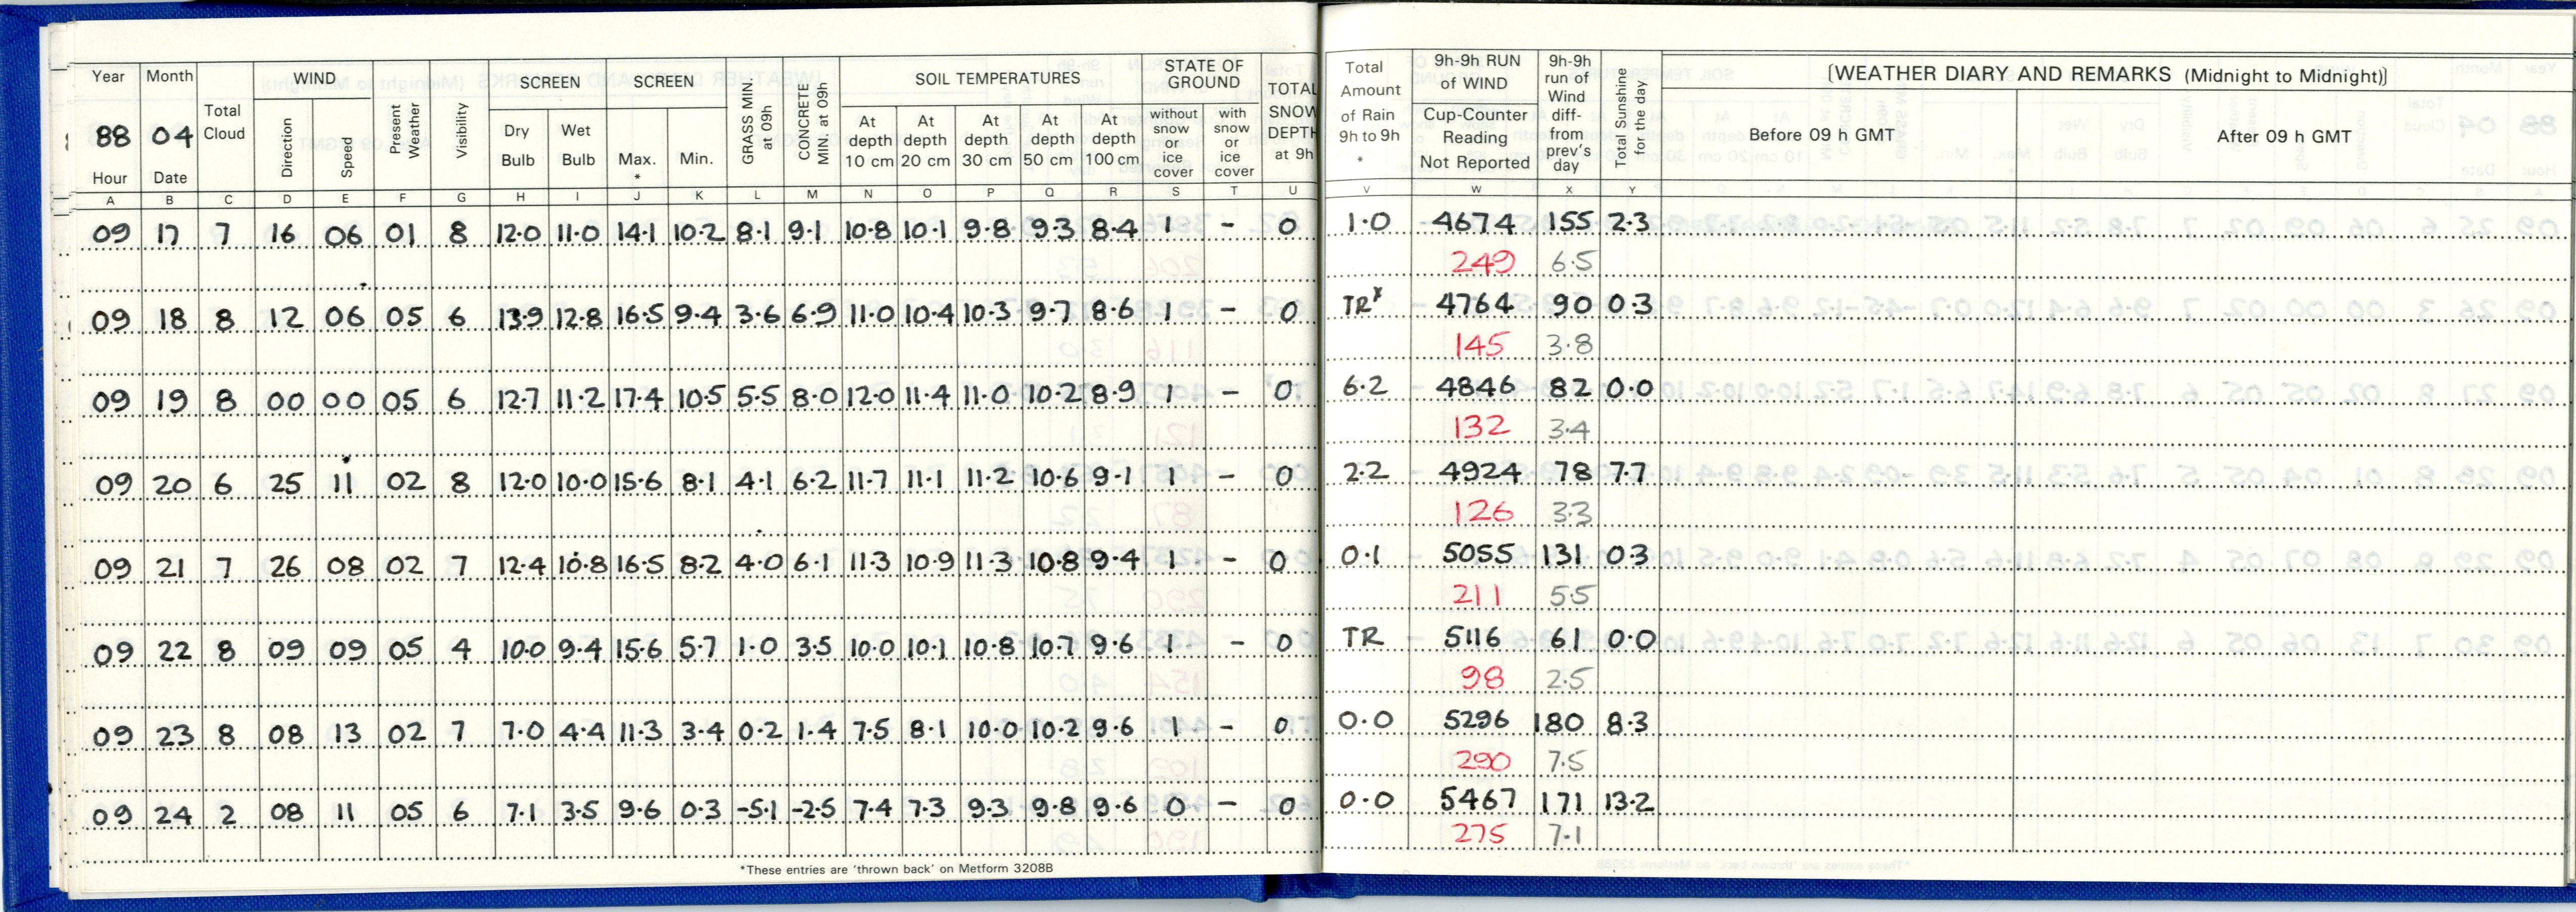 Year Month Total Cloud WIND Direction Speed Present Weather Visibility SCREEN Dry Bulb Wet Bulb SCREEN Max. * Min. GRASS MIN. at 09h CONCRETE MIN. at 09h SOIL TEMPERATURES At depth 10 cm At depth 20 cm At depth 30 cm At depth 50 cm At depth 100 cm STATE OF GROUND without snow or ice cover with snow or ice cover TOTAL SNOW DEPTH at 9h Total Amount of Rain 9h to 9h * 9h-9h RUN of WIND Cup-Counter Reading Not Reported 9h-9h run of Wind diff- from prev's day Total Sunshine for the day [WEATHER DIARY AND REMARKS (Midnight to Midnight)] Before 09 h GMT After 09 h GMT
88 04
Hour Date
A B C D E F G H I J K L M N O P Q R S T U V W X Y
09 17 7 16 06 01 8 12.0 11.0 14.1 10.2 8.1 9.1 10.8 10.1 9.8 9.3 8.4 1 - 0 1.0 4674 155 2.3
249 6.5
09 18 8 12 06 05 6 13.9 12.8 16.5 9.4 3.6 6.9 11.0 10.4 10.3 9.7 8.6 1 - 0 TRx 4764 90 0.3
145 3.8
09 19 8 00 00 05 6 12.7 11.2 17.4 10.5 5.5 8.0 12.0 11.4 11.0 10.2 8.9 1 - 0 6.2 4846 82 0.0
132 3.4
09 20 6 25 11 02 8 12.0 10.0 15.6 8.1 4.1 6.2 11.7 11.1 11.2 10.6 9.1 1 - 0 2.2 4924 78 7.7
126 3.3
09 21 7 26 08 02 7 12.4 10.8 16.5 8.2 4.0 6.1 11.3 10.9 11.3 10.8 9.4 1 - 0 0.1 5055 131 0.3
211 5.5
09 22 8 09 09 05 4 10.0 9.4 15.6 5.7 1.0 3.5 10.0 10.1 10.8 10.7 9.6 1 - 0 TR 5116 61 0.0
98 2.5
09 23 8 08 13 02 7 7.0 4.4 11.3 3.4 0.2 1.4 7.5 8.1 10.0 10.2 9.6 1 - 0 0.0 5296 180 8.3
290 7.5
09 24 2 08 11 05 6 7.1 3.5 9.6 0.3 -5.1 -2.5 7.4 7.3 9.3 9.8 9.6 0 - 0 0.0 5467 171 13.2
275 7.1
*These entries are 'thrown back' on Metform 3208B